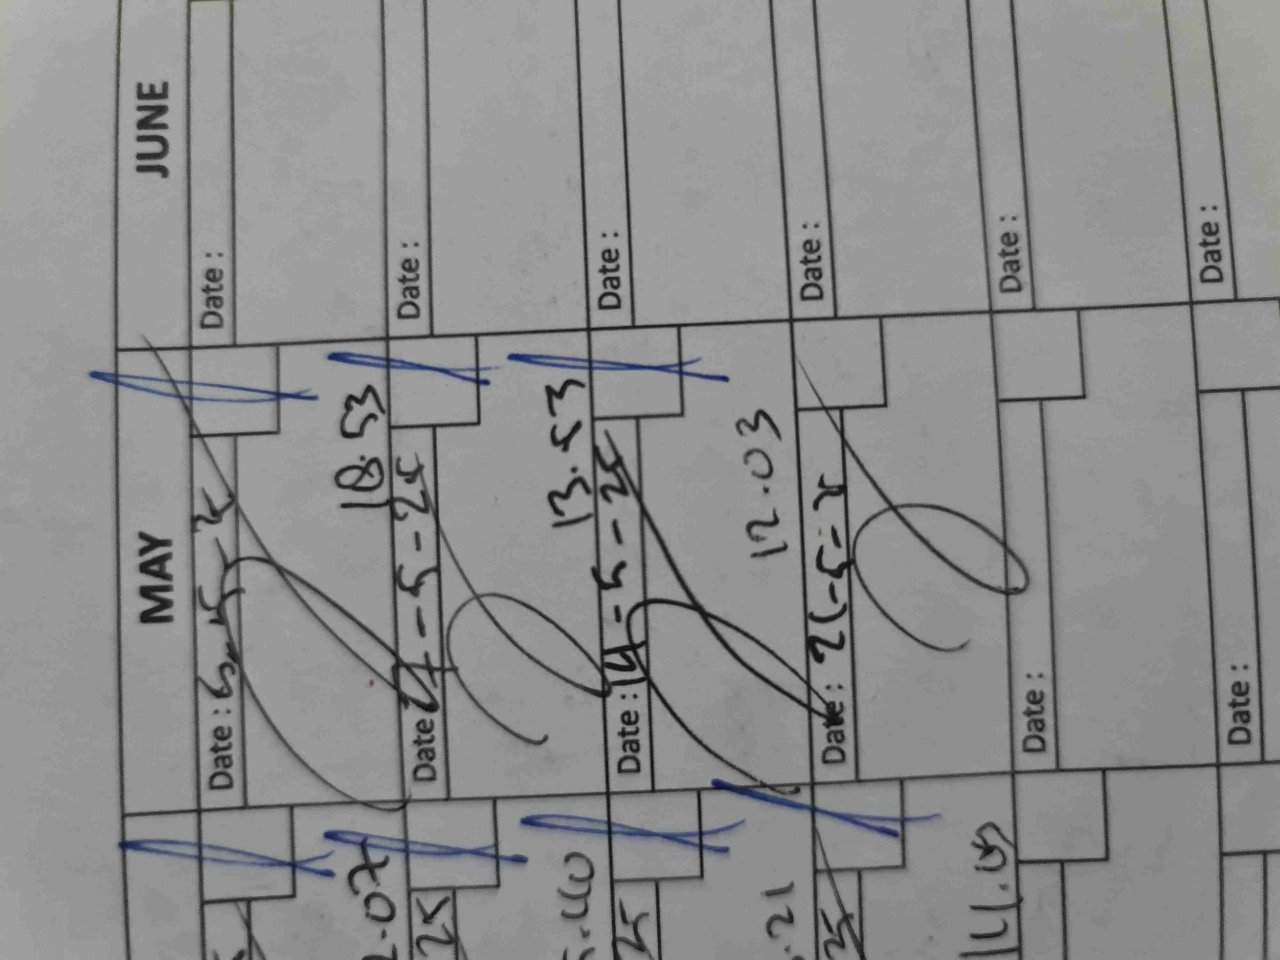 MAY JUNE
Date : 6-5-25 Date :
18.53
Date 7-5-25 Date :
2.07
25
13.53
Date : 14-5-25 Date :
25
12.03
Date : 21-5-25 Date :
.21
25
Date : Date :
Date : Date :